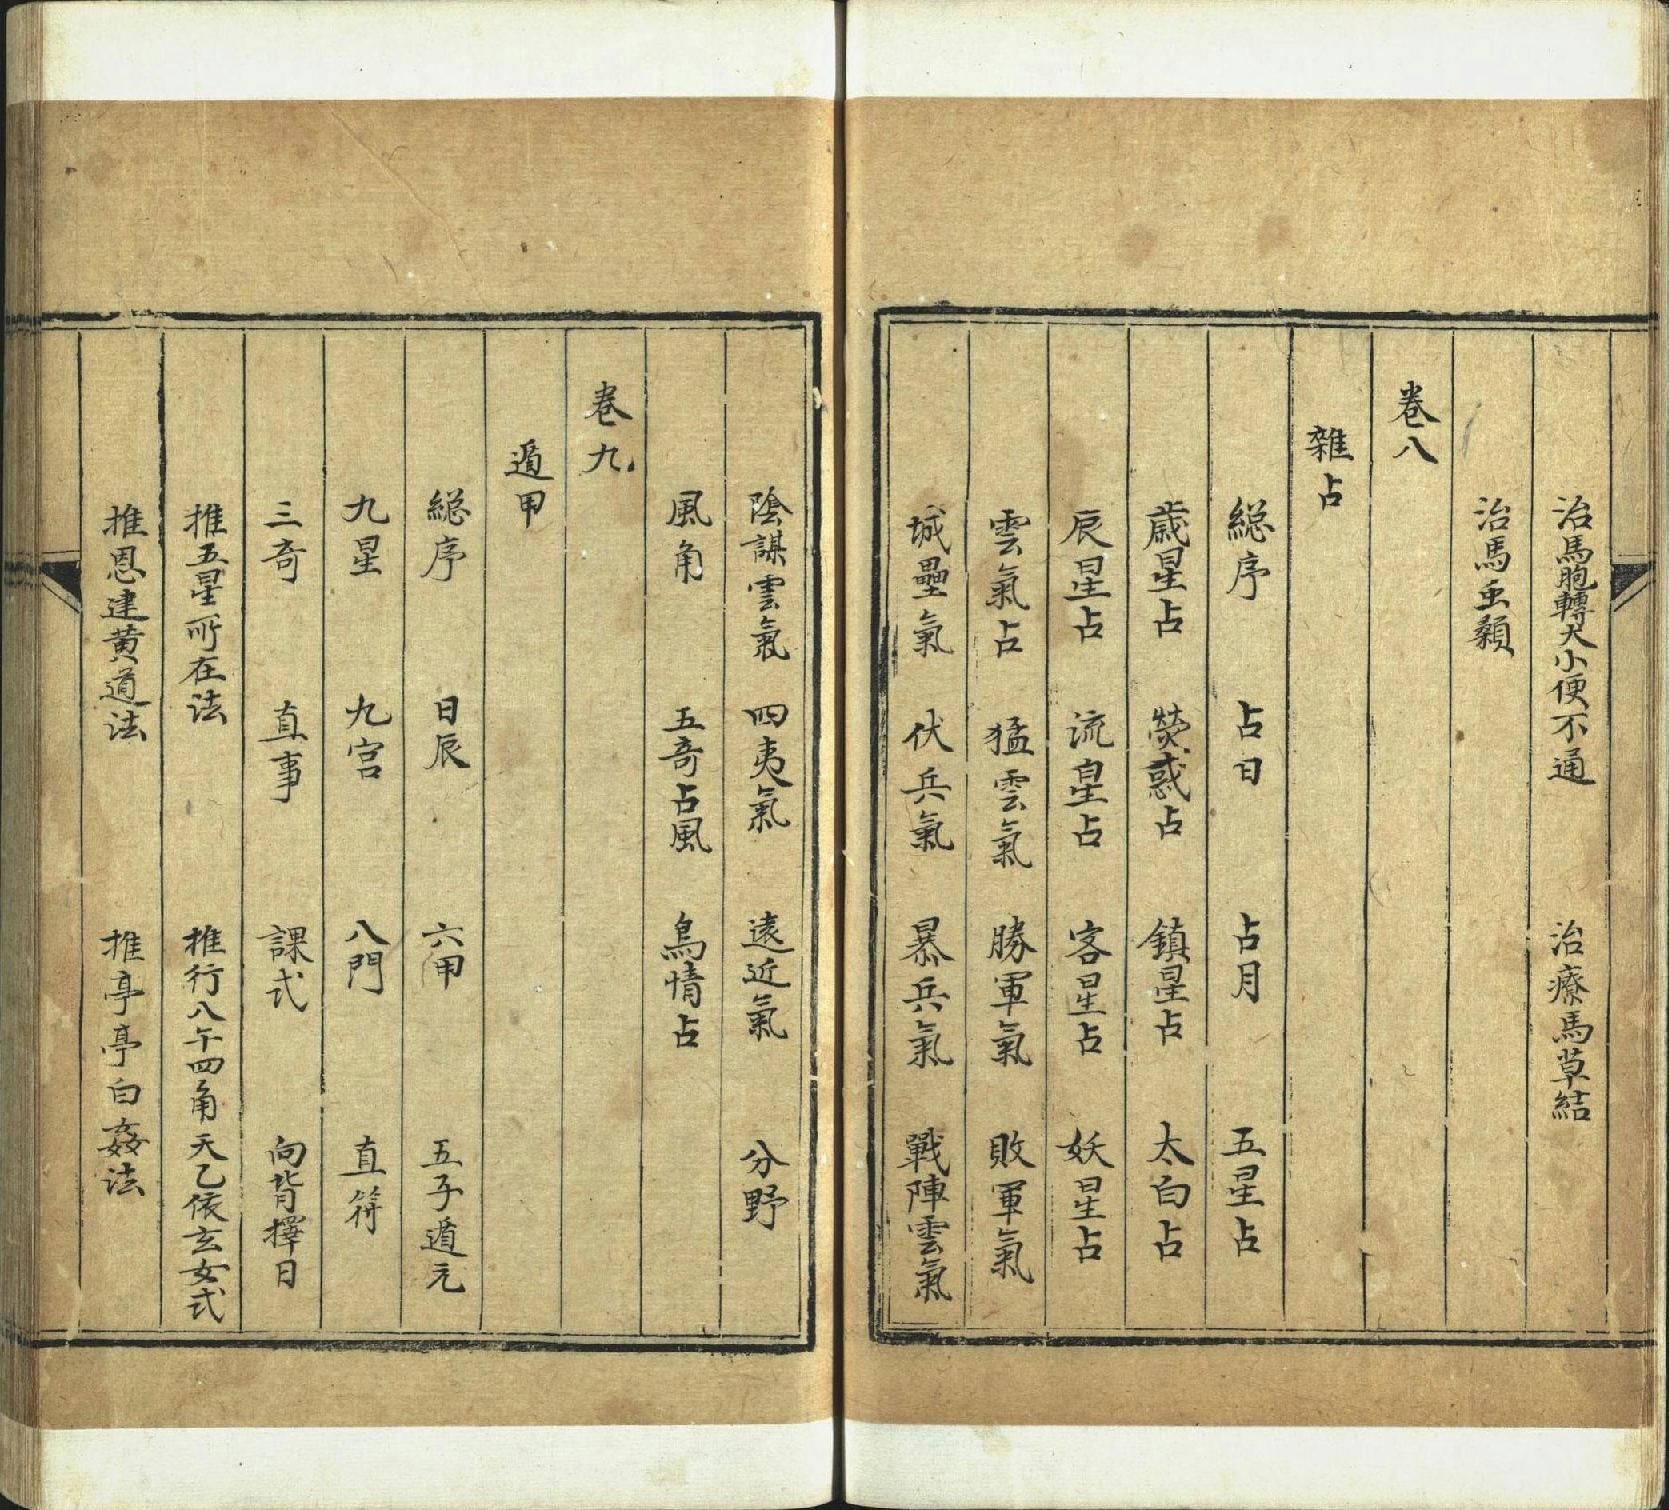 治馬胞轉大小便不通 治療馬草結
治馬虫顙
卷八
雜占
緫序 占日 占月 五星占
歲星占 熒惑占 鎮星占 太白占
辰星占 流星占 客星占 妖星占
雲氣占 猛雲氣 勝軍氣 敗軍氣
城壘氣 伏兵氣 暴兵氣 戰陣雲氣
陰謀雲氣 四夷氣 遠近氣 分野
風角 五奇占風 鳥情占
卷九
遁甲
緫序 日辰 六甲 五子遁元
九星 九宮 八門 直符
三奇 直事 課式 向背擇日
推五星所在法 推行八午四角天乙依玄女式
推恩建黄道法 推亭亭白姦法